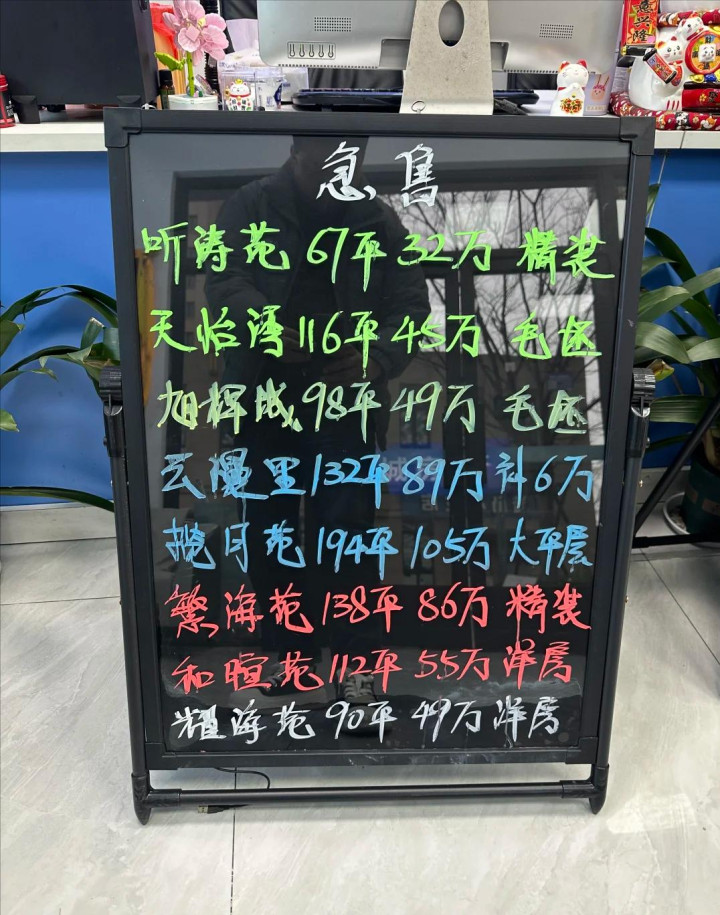 急售
听涛苑 67平 32万 精装
天怡湾 116平 45万 毛坯
旭辉城 98平 49万 毛坯
云漫里 132平 89万 计6万
揽月苑 194平 105万 大平层
繁海苑 138平 86万 精装
和暄苑 112平 55万 洋房
耀海苑 90平 49万 洋房